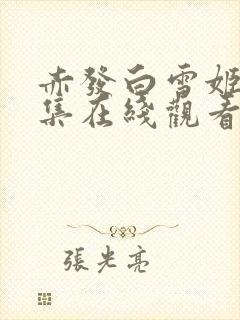 赤發白雪姬
集在綫觀看
張光亮